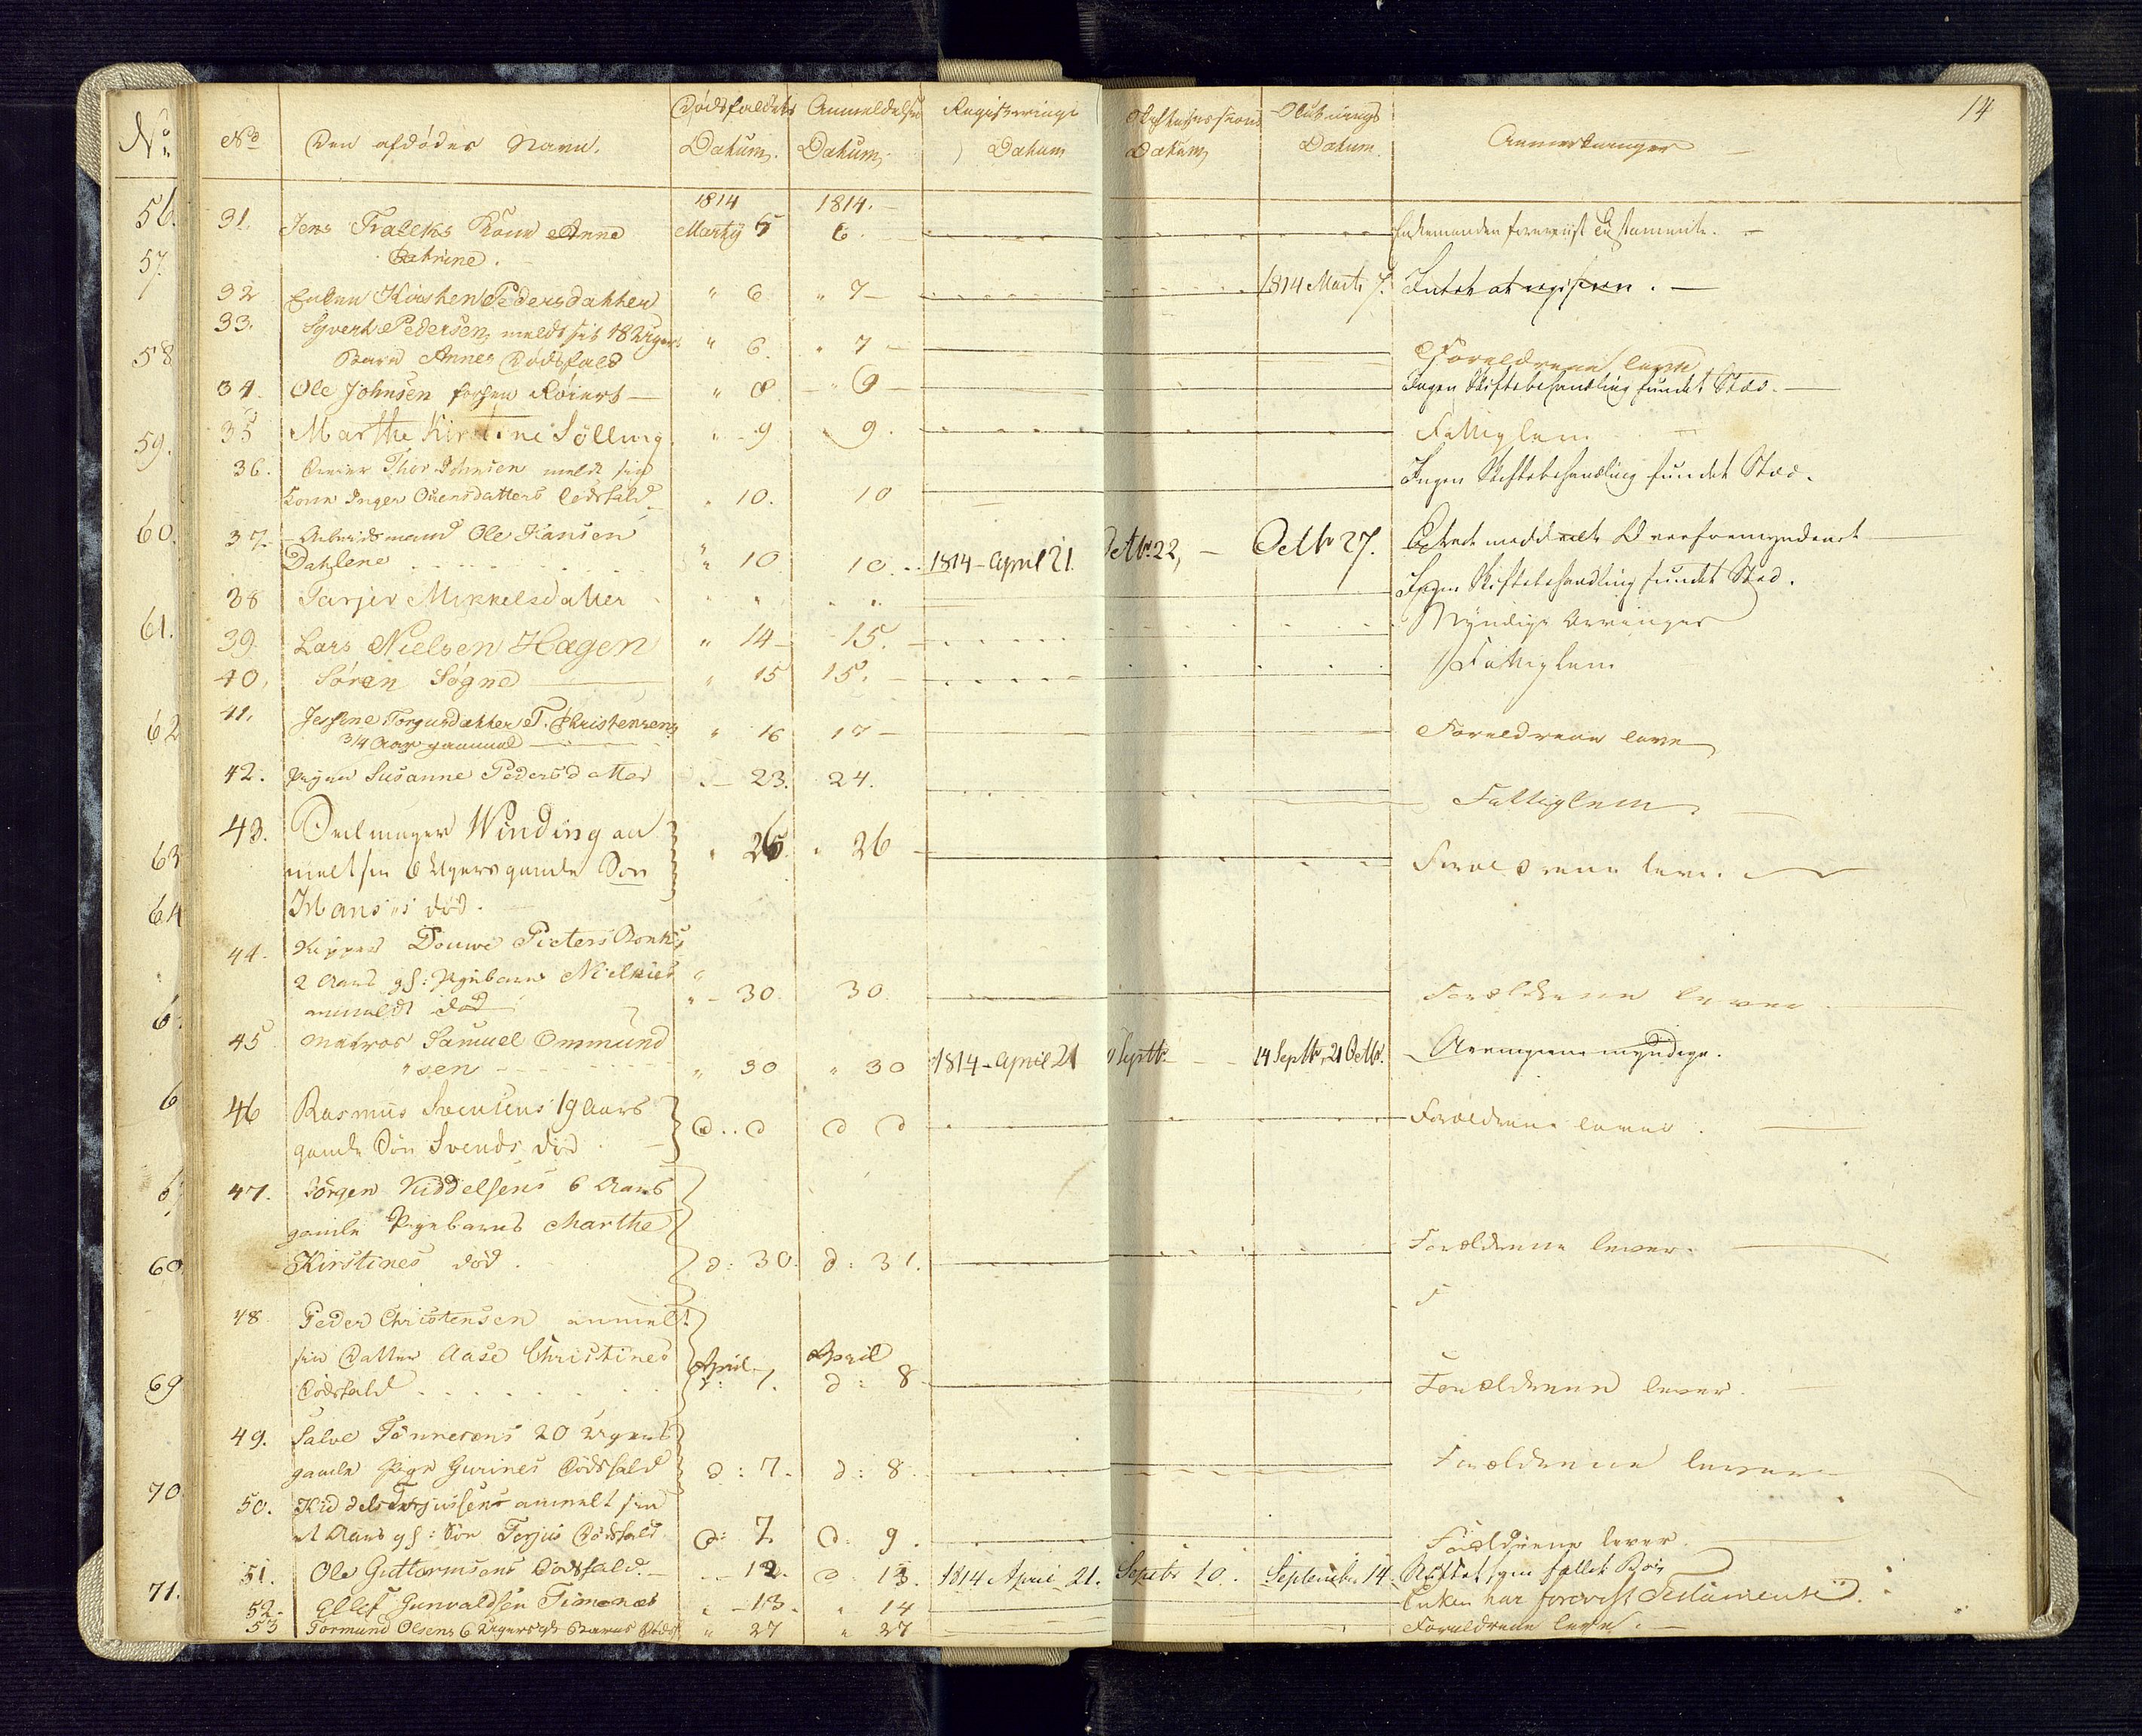 14
No
No
Den afdødes Navn.
Dødsfaldets Datum.
Anmeldelse Datum.
Registrerings Datum
Skiftesessions Datum
Slutnings Datum.
Anmerkninger
1814
1814.
56.
31. Jens Fralchs Kone Anne Martz 5 6
Cathrine.
Enkemanden foreviist Testamente.
57.
32 Enken Kirsten Pedersdatter " 6 " 7 1814 Marts 7. Intet at registrere.
33. Syvert Pedersen meldt sit 18 Ugers " 6. " 7
Barn Annes Dødsfald
Forældrene leve
58
34. Ole Johnsen " 8 " 9 Ingen Skiftebehandling fundet Sted.
59.
35 Marthe Kirstine Sølling " 9 " 9. Fattiglem
36. Thor Johnsen meldt sin
Kone Inger Olensdatters Dødsfald " 10. 10 Ingen Skiftebehandling fundet Sted.
60.
37. Arbeidsmand Ole Hansen
Dahlene " 10 10. 1814 - April 21. Octbr. 22, Octbr 27. Extract meddeelt Overformynderiet
38 Tarjer Mikkelsdatter " " " " Ingen Skiftebehandling fundet Sted.
61.
39. Lars Nielsen Hagen " 14 15. Myndige Arvinger
40. Søren Søgne " 15 15. Fattiglem
62
41. Jessine Torgersdatter T. Christensens
3/4 Aar gammel " 16 17 Forældrene leve
42. Pigen Susanne Pedersdatter - 23. 24. Fattiglem
63
43. Winding an
melt sin 6 Ugers gamle Søn
Hans's død. " 26. " 26 Forældrene leve.
64
44. Skipper Douwe Pieters Bonk's
2 Aars gl: Pigebarn Nielkies
anmeldt død " 30. 30. Forældrene lever
6
45 Matros Samuel Ommund
"sen " 30 " 30 1814 - April 21 Septbr. 14 Septbr, 21 Octbr. Arvingerne myndige.
6
46 Rasmus Svensens 19 Aars
gamle Søn Svends død. d. d d d Forældrene lever.
6
47. Jørgen Kiddelsens 6 Aars
gamle Pigebarns Marthe
Kirstines død. d: 30. d: 31. Forældrene lever.
60
48. Peder Christensen anmelt
sin Datter Aase Christines
Dødsfald April d: 7. April d: 8 Forældrene lever.
69
49. Salve Tønnesens 20 Ugers
gamle Pige Gurines Dødsfald d: 7. d: 8. Forældrene lever
70
50. Kiddel Terjussens anmelt sin
et Aars gl: Søn Terjus Dødsfald d: 7. d: 9. Forældrene lever.
51. Ole Guttormsens Dødsfald. - 12. d 13. 1814 April 21. Septbr 10. September 14. Skiftet
71.
52. Ellef Gunvaldsen Timenes " - 13. " 14 Enken har foreviist Testamente.
53 Tormund Olsens 6 Ugers gl: Barns Død " 27 " 27 Forældrene leve.